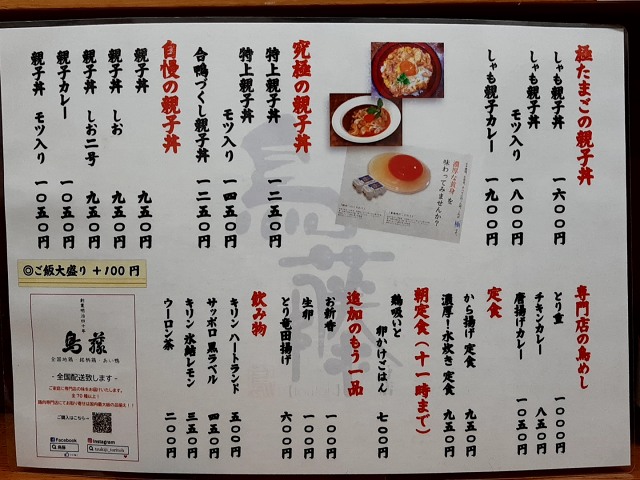 極たまごの親子丼
しゃも親子丼 一六〇〇円
しゃも親子丼 モツ入り 一八〇〇円
しゃも親子カレー 一九〇〇円
濃厚な黄身を
味わってみませんか?
究極の親子丼
特上親子丼 一二五〇円
特上親子丼 モツ入り 一四五〇円
合鴨づくし親子丼 一二五〇円
自慢の親子丼
親子丼 九五〇円
親子丼 しお 九五〇円
親子丼 しお二号 九五〇円
親子カレー 一〇五〇円
親子丼 モツ入り 一〇五〇円
◎ご飯大盛り +100円
専門店の鳥めし
とり重 一〇〇〇円
チキンカレー 八五〇円
唐揚げカレー 一〇五〇円
定食
から揚げ 定食 九五〇円
濃厚!水炊き 定食 九五〇円
朝定食(十一時まで)
鶏吸いと
卵かけごはん 七〇〇円
追加のもう一品
お新香 一〇〇円
生卵 一〇〇円
とり竜田揚げ 六〇〇円
飲み物
キリン ハートランド 五〇〇円
サッポロ 黒ラベル 四五〇円
キリン 氷結レモン 三五〇円
ウーロン茶 二〇〇円
鳥藤
創業明治四十年
鳥藤
全国地鶏・銘柄鶏・あい鴨
- 全国配送致します -
ご家庭に専門店の味をお届けいたします。
ご購入はこちら→
Facebook
鳥藤
Instagram